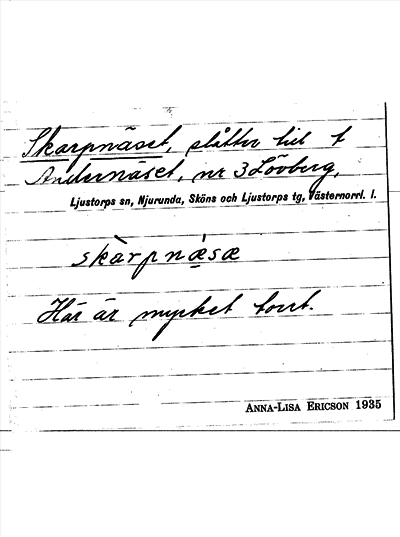 Skarpnäset, slåtter till t
Andernäset, nr 3 Lövberg,
Ljustorps sn, Njurunda, Sköns och Ljustorps tg, Västernorrl. l.
skàrpnæ̀sæ
Här är mycket torrt.
ANNA-LISA ERICSON 1935